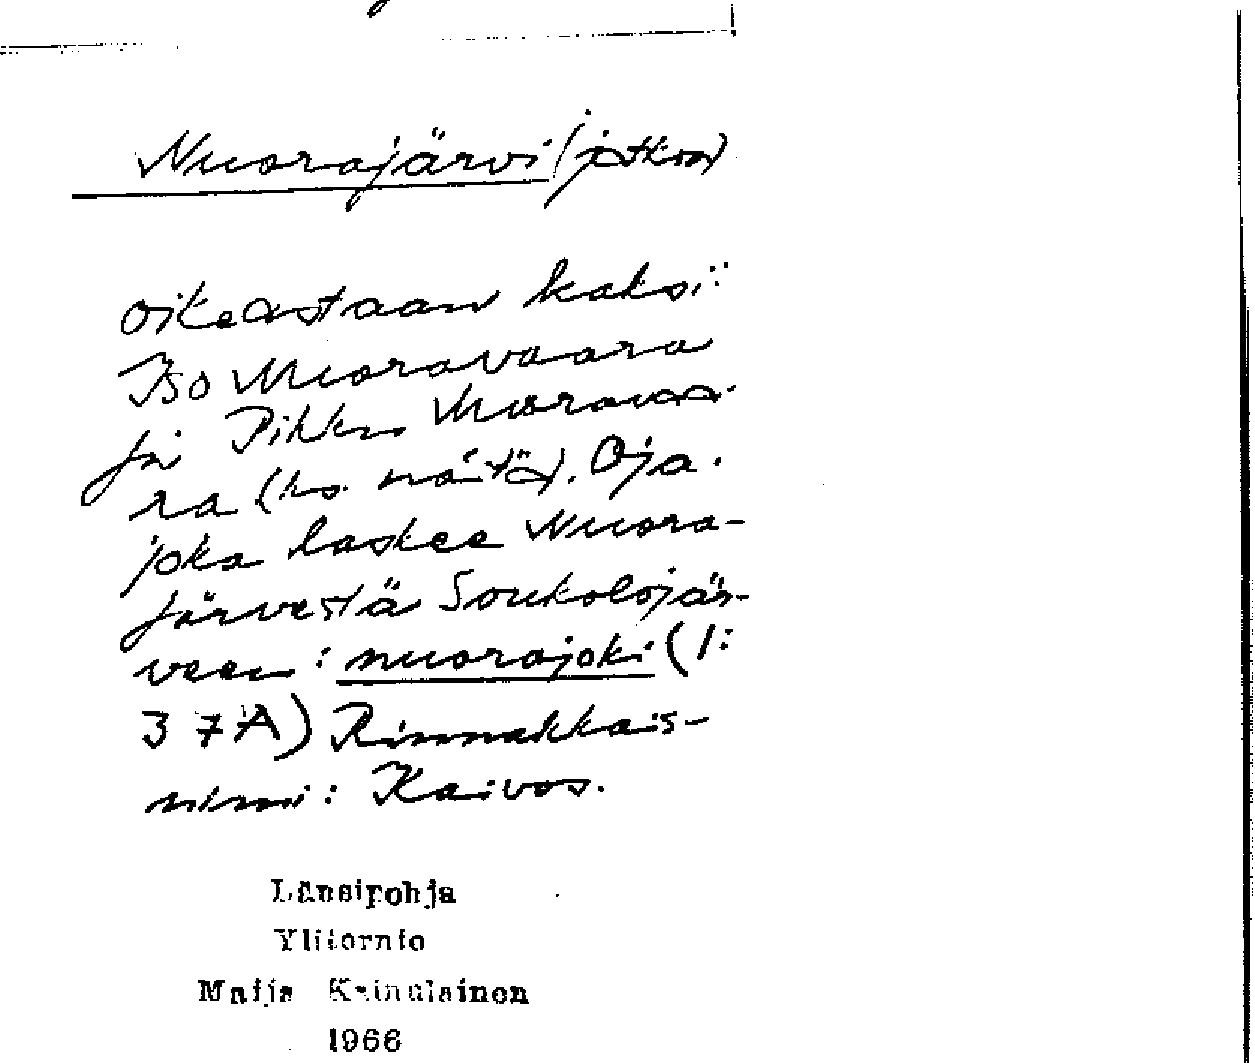 Nuorajärvi (jatkoa)
oikeastaan kaksi:
Iso Nuoravaara
ja Pikku Nuoravaa-
ra (ks. näitä). Oja.
joka laskee Nuora-
järvestä Soukolojär-
veen: nuorajoki (1:
37A) Rinnakkais-
nimi: Kaivos.
Länsipohja
Ylitornio
Maija Kainulainen
1966